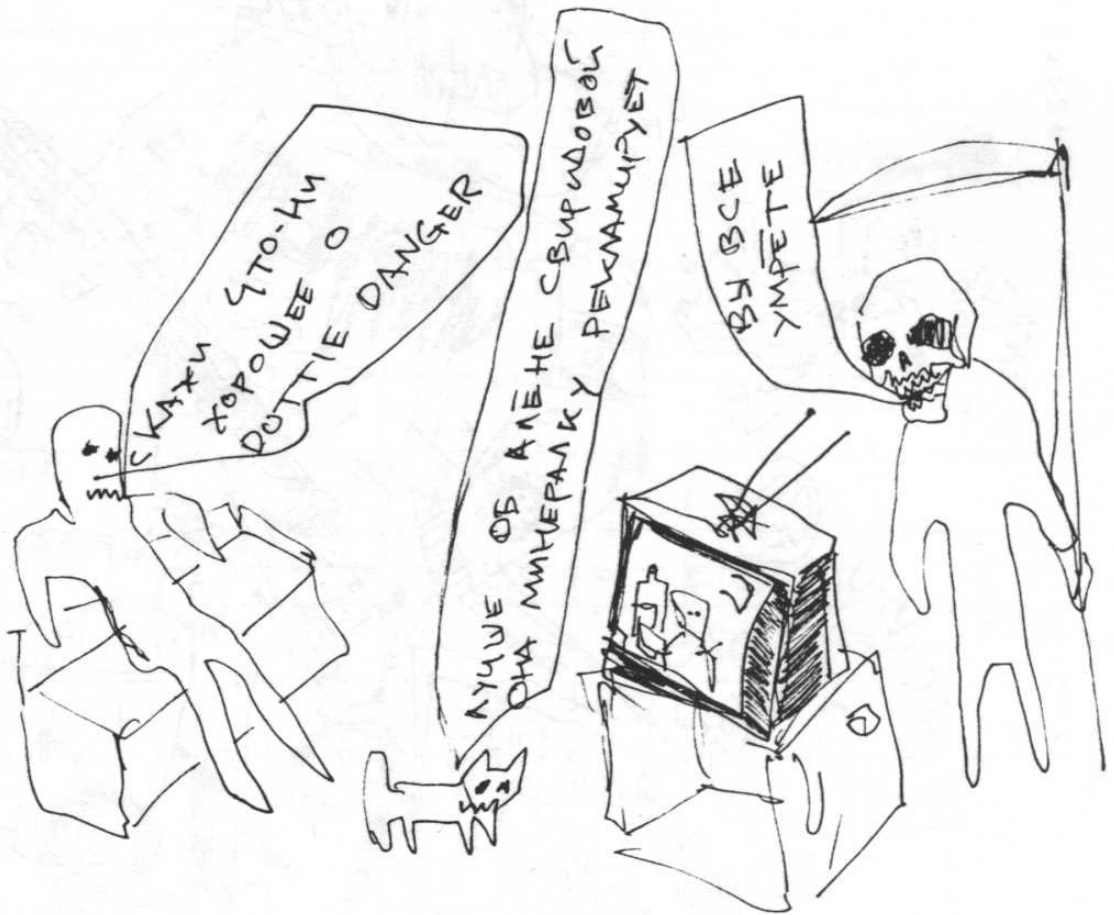 СКАЖИ ЧТО-НИ
ХОРОШЕЕ О
DOTTIE DANGER
ЛУЧШЕ ОБ АЛЁНЕ СВИРИДОВОЙ
ОНА МИНЕРАЛКУ РЕКЛАМИРУЕТ
ВЫ ВСЕ
УМРЁТЕ